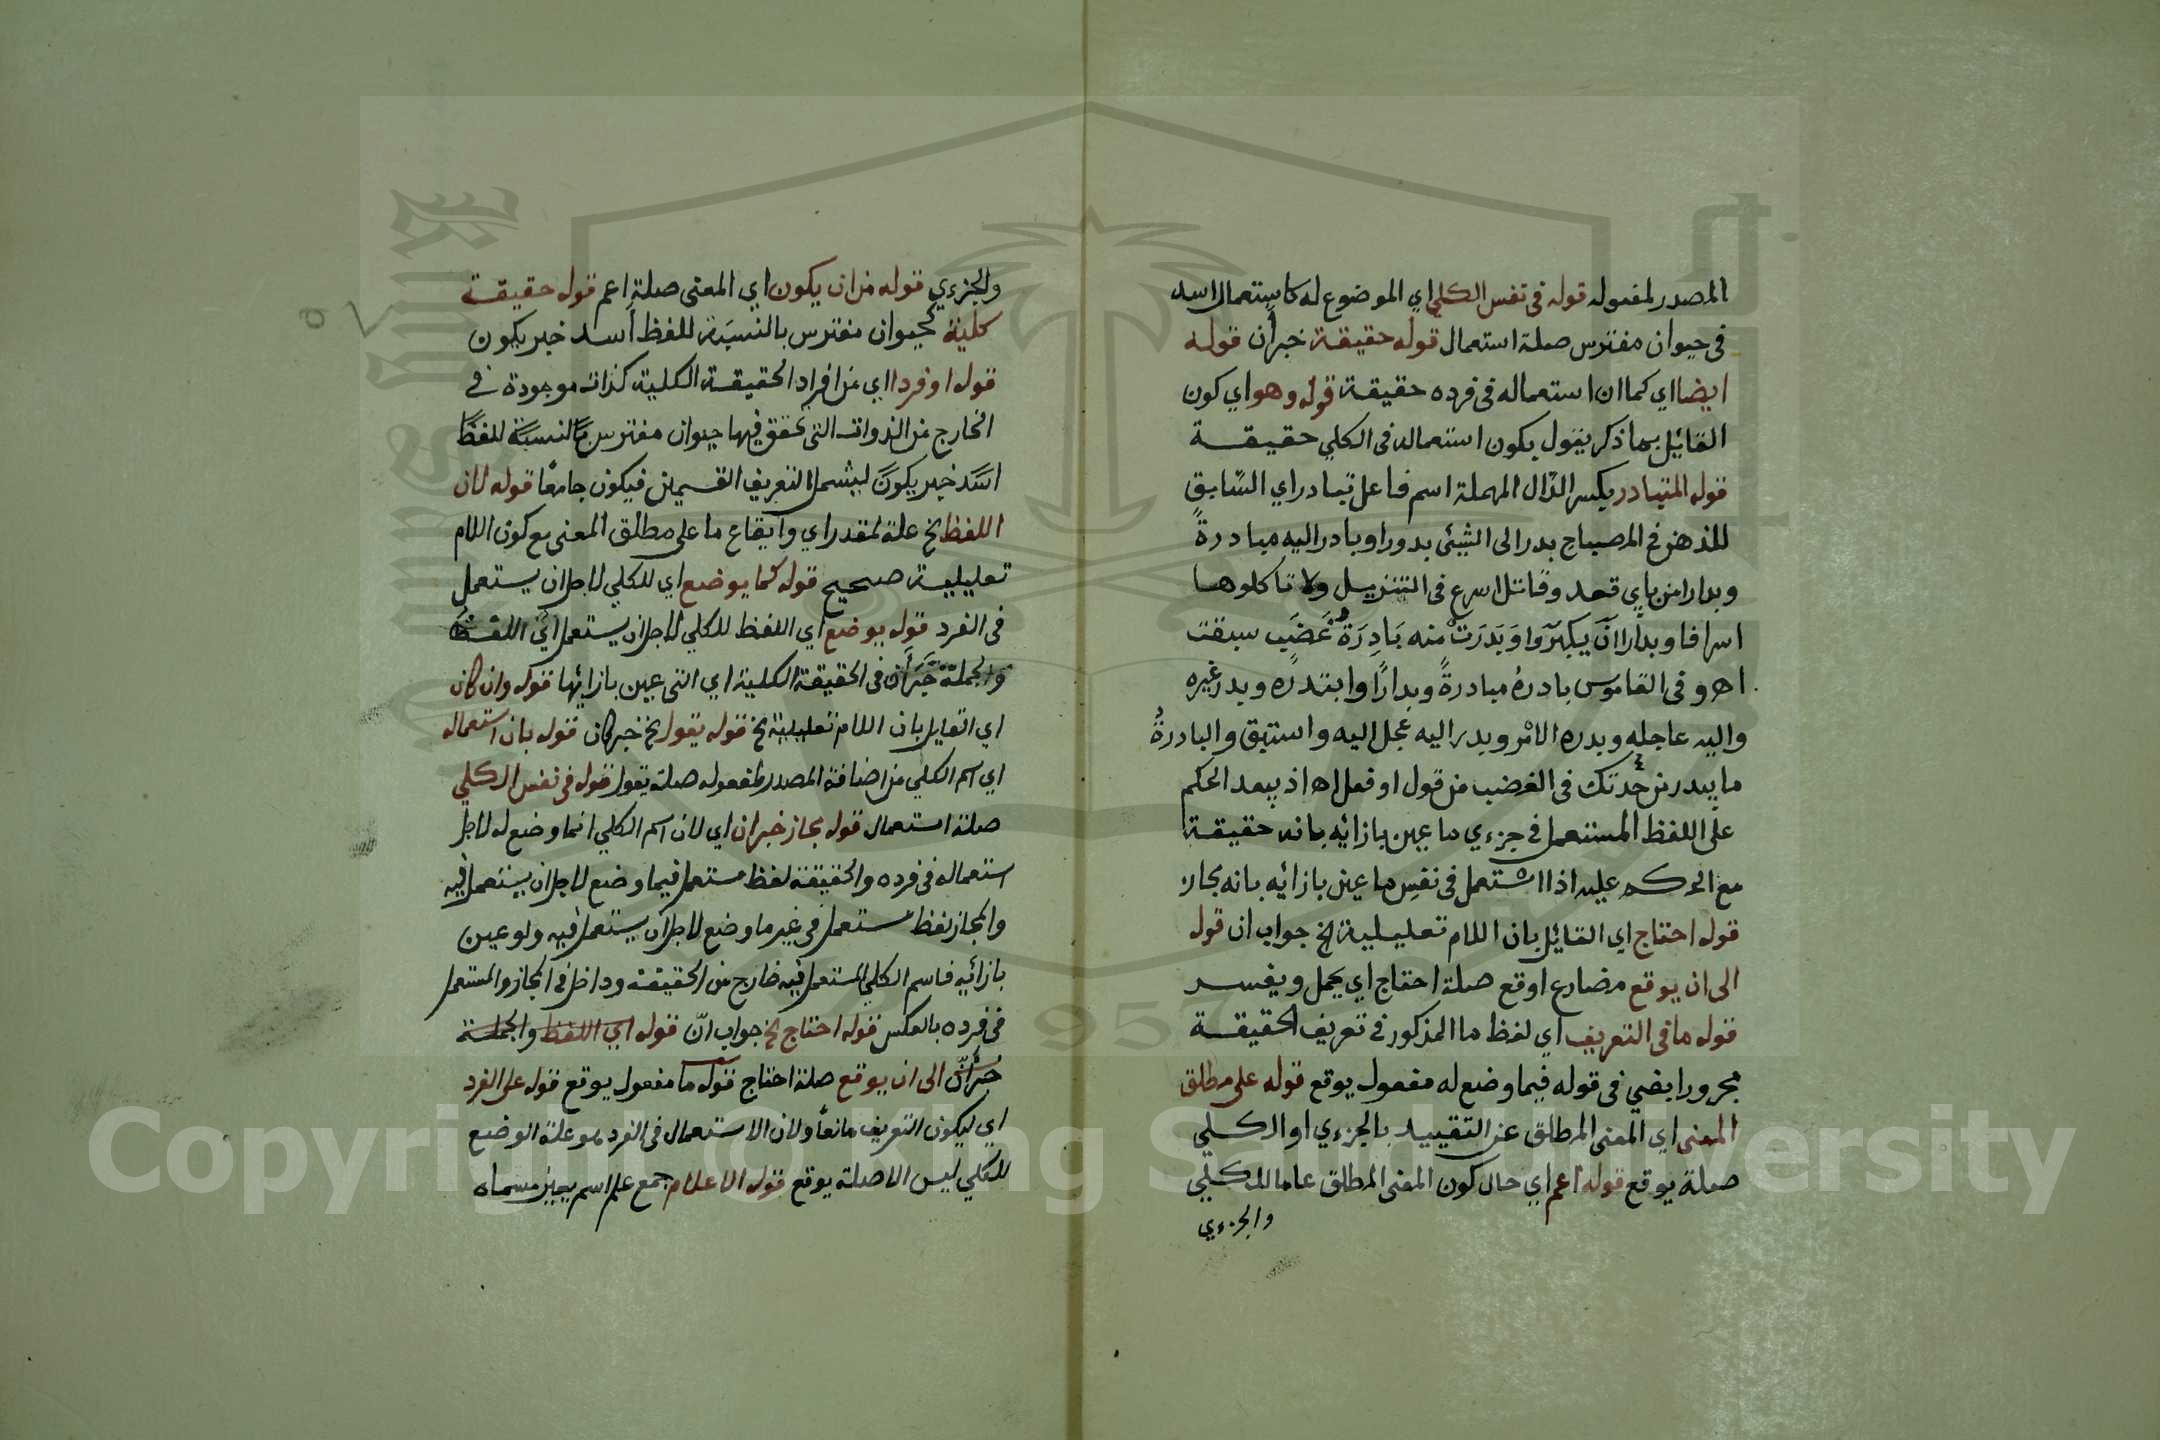 المصدر لمفعوله قوله في نفس الكلي اي الموضوع له كاستعمال اسد
في حيوان مفترس صلة استعمال قوله حقيقة خبر ان قوله
ايضا اي كما ان استعماله في فرده حقيقة قوله وهو اي كون
القايل بما ذكر يقول بكون استعماله في الكلي حقيقة
قوله المتبادر بكسر الدال المهملة اسم فاعل تبادر اي السّابق
للذهن في المصباح بدر الى الشيئ بدورا وبادر اليه مبادرةً
وبدارا من باي قعد وقاتل اسرع في التنزيل ولا تاكلوها
اسرافا وبدارا ان يكبروا وَبَدَرَتْ منه بَادِرَةُ غَضَبٍ سبقت
اه وفي القاموس بادره مبادرةً وبدارًا وابتدره وبدر غيره
واليه عاجله وبدره الامر وبدر اليه عجل اليه واستبق والبادرةُ
ما يبدر من حدتك في الغضب من قول او فعل اه اذ يبعد الحكم
على اللفظ المستعمل في جزءي ما عين بازائه بانه حقيقة
مع الحكم عليه اذا استعمل في نفس ما عين بازائه بانه مجاز
قوله احتاج اي القائل بان اللام تعليلية الخ جواب ان قوله
الى ان يوقع مضارع اوقع صلة احتاج اي يحمل ويفسر
قوله ما في التعريف اي لفظ ما المذكور في تعريف الحقيقة
مجرورا بفي في قوله فيما وضع له مفعول يوقع قوله على مطلق
المعنى اي المعنى المطلق عن التقييد بالجزءي او الكلي
صلة يوقع قوله اعم اي حال كون المعنى المطلق عاما للكلي
والجزءي
والجزءي قوله من ان يكون اي المعنى صلة اعم قوله حقيقة
كلية كحيوان مفترس بالنسبة للفظ أسد خبر يكون
قوله او فردا اي من افراد الحقيقة الكلية كذات موجودة في
الخارج من الذوات التي تحقق فيها حيوان مفترس بالنسبة للفظ
اسد خبر يكون ليشمل التعريف القسمين فيكون جامعًا قوله لان
اللفظ الخ علة لمقدر اي وايقاع ما على مطلق المعنى مع كون اللام
تعليلية صحيح قوله كما يوضع اي للكلي لاجل ان يستعمل
في الفرد قوله يوضع اي اللفظ للكلي لاجل ان يستعمل اي اللفظ
والجملة خبر أن في الحقيقة الكلية اي التي عين بازائها قوله وان كان
اي القايل بان اللام تعليلية الخ قوله يقول الخ خبر كان قوله بان استعماله
اي اسم الكلي من اضافة المصدر لمفعوله صلة يقول قوله في نفس الكلي
صلة استعمال قوله مجاز خبر ان اي لان اسم الكلي انما وضع له لاجل
استعماله في فرده والحقيقة لفظ مستعمل فيما وضع لاجل ان يستعمل فيه
والمجاز لفظ مستعمل في غير ما وضع لاجل ان يستعمل فيه ولو عين
بازائه فاسم الكلي المستعمل فيه خارج من الحقيقة وداخل في المجاز والمستعمل
في فرده بالعكس قوله احتاج الخ جواب انّ قوله اي اللفظ والجملة
خبر أنّ الى ان يوقع صلة احتاج قوله ما مفعول يوقع قوله على الفرد
اي ليكون التعريف مانعًا ولان الاستعمال في الفرد هو علة الوضع
للكلي ليس الا صلة يوقع قوله الاعلام جمع علم اسم يعين مسماه
Copyright © King Saud University
1957